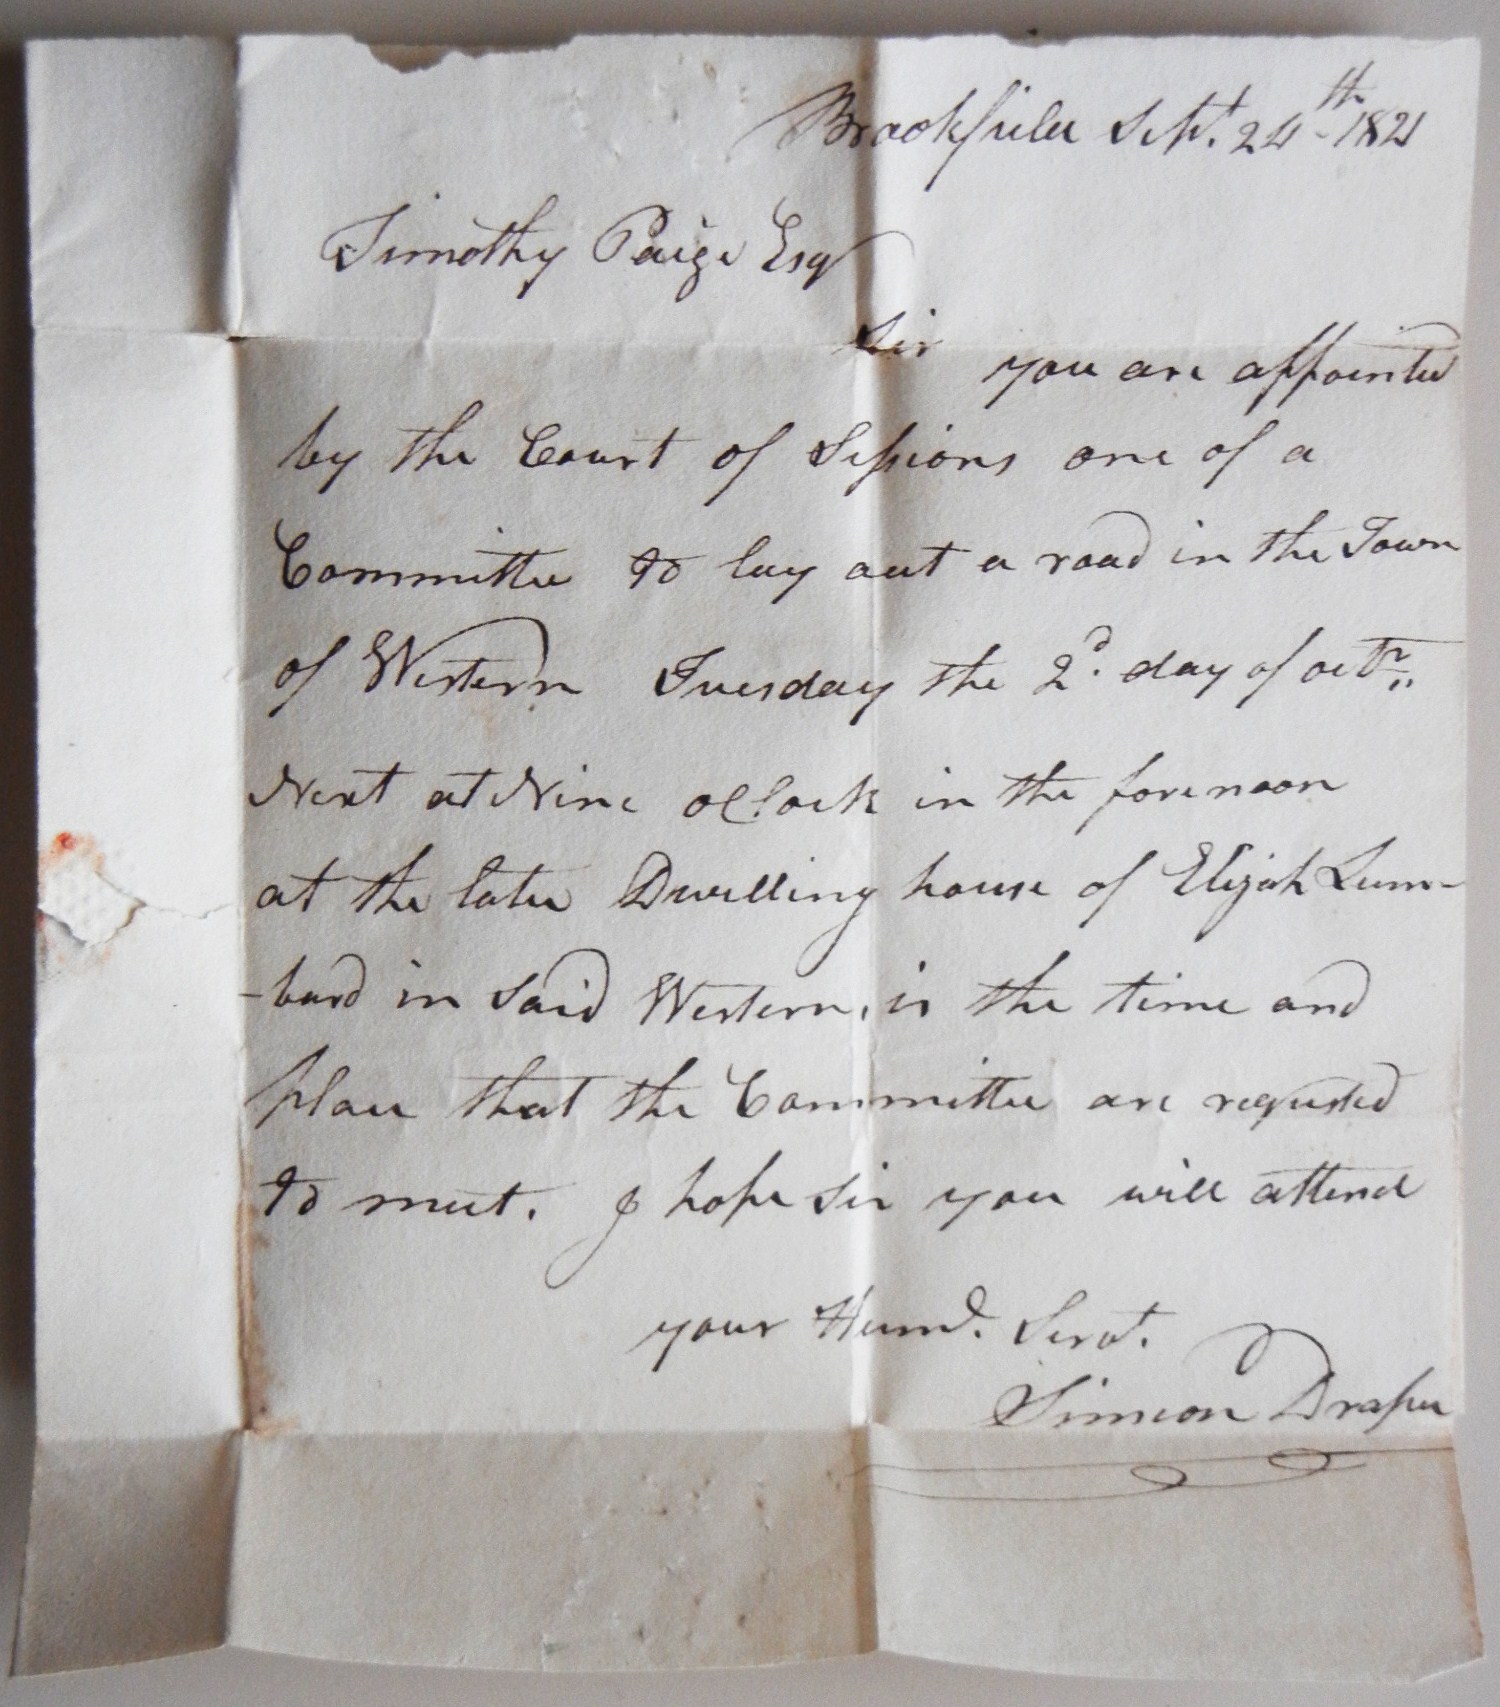 Brookfield Sept. 24th 1821
Timothy Paige Esqr
Sir you are appointed
by the Court of Sessions one of a
Committee to lay out a road in the Town
of Western Tuesday the 2d. day of octr.,,
Next at Nine oClock in the forenoon
at the late Dwelling house of Elijah Lum-
-bard in said Western, is the time and
place that the Committee are requested
to meet. I hope Sir you will attend
your Huml. Servt.
Simeon Draper